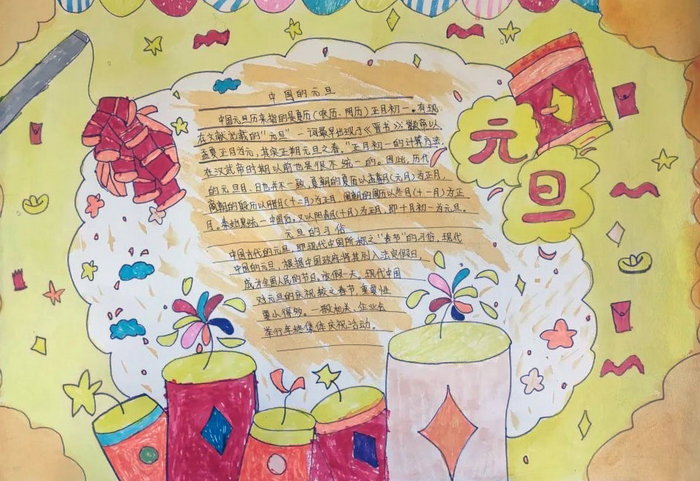 中国的元旦
中国元旦历来指的是夏历(农历、阴历)正月初一。有现
在文献记载的"元旦"一词最早出现于《晋书》:"颛帝以
孟夏正月为元,其实正朔元旦之春。"正月初一的计算方法,
在汉武帝时期以前也是很不统一的。因此,历代
的元旦月、日也并不一致。夏朝的夏历以孟喜月(元月)为正月,
商朝的殷历以腊月(十二月)为正月,周朝的周历以冬月(十一月)为正
月。秦始皇统一中国后,又以阳春月(十月)为正月,即十月初一为元旦。
元旦的习俗
中国古代的元旦,即现代中国所称之"春节"的习俗,现代
中国的元旦,根据中国政府将其列入法定假日,
成为全国人民的节日。放假一天,现代中国
对元旦的庆祝较之春节,重要性
要小得多。一般机关、企业会
举行年终集体庆祝活动。
元
旦